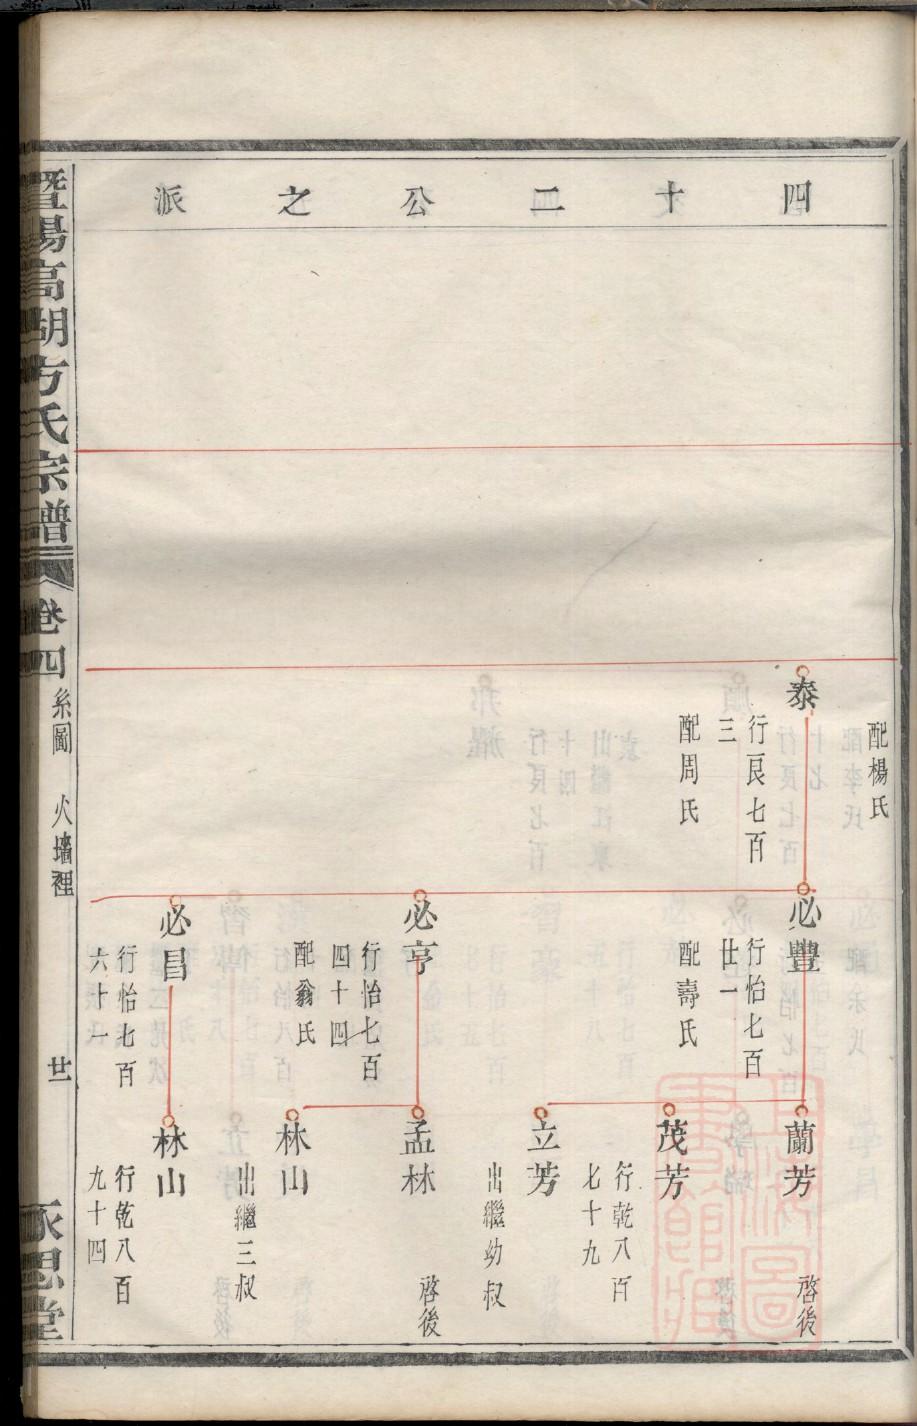 四十二公之派
配楊氏
泰
行艮七百
三
配周氏
必豐
行怡七百
廿一
配壽氏
必亨
行怡七百
四十四
配翁氏
必昌
行怡七百
六十一
蘭芳
啓後
茂芳
行乾八百
七十九
立芳
出繼幼叔
孟林
啓後
林山
出繼三叔
林山
行乾八百
九十四
暨陽高湖方氏宗譜
卷四
系圖
火墻裡
廿一
永思堂